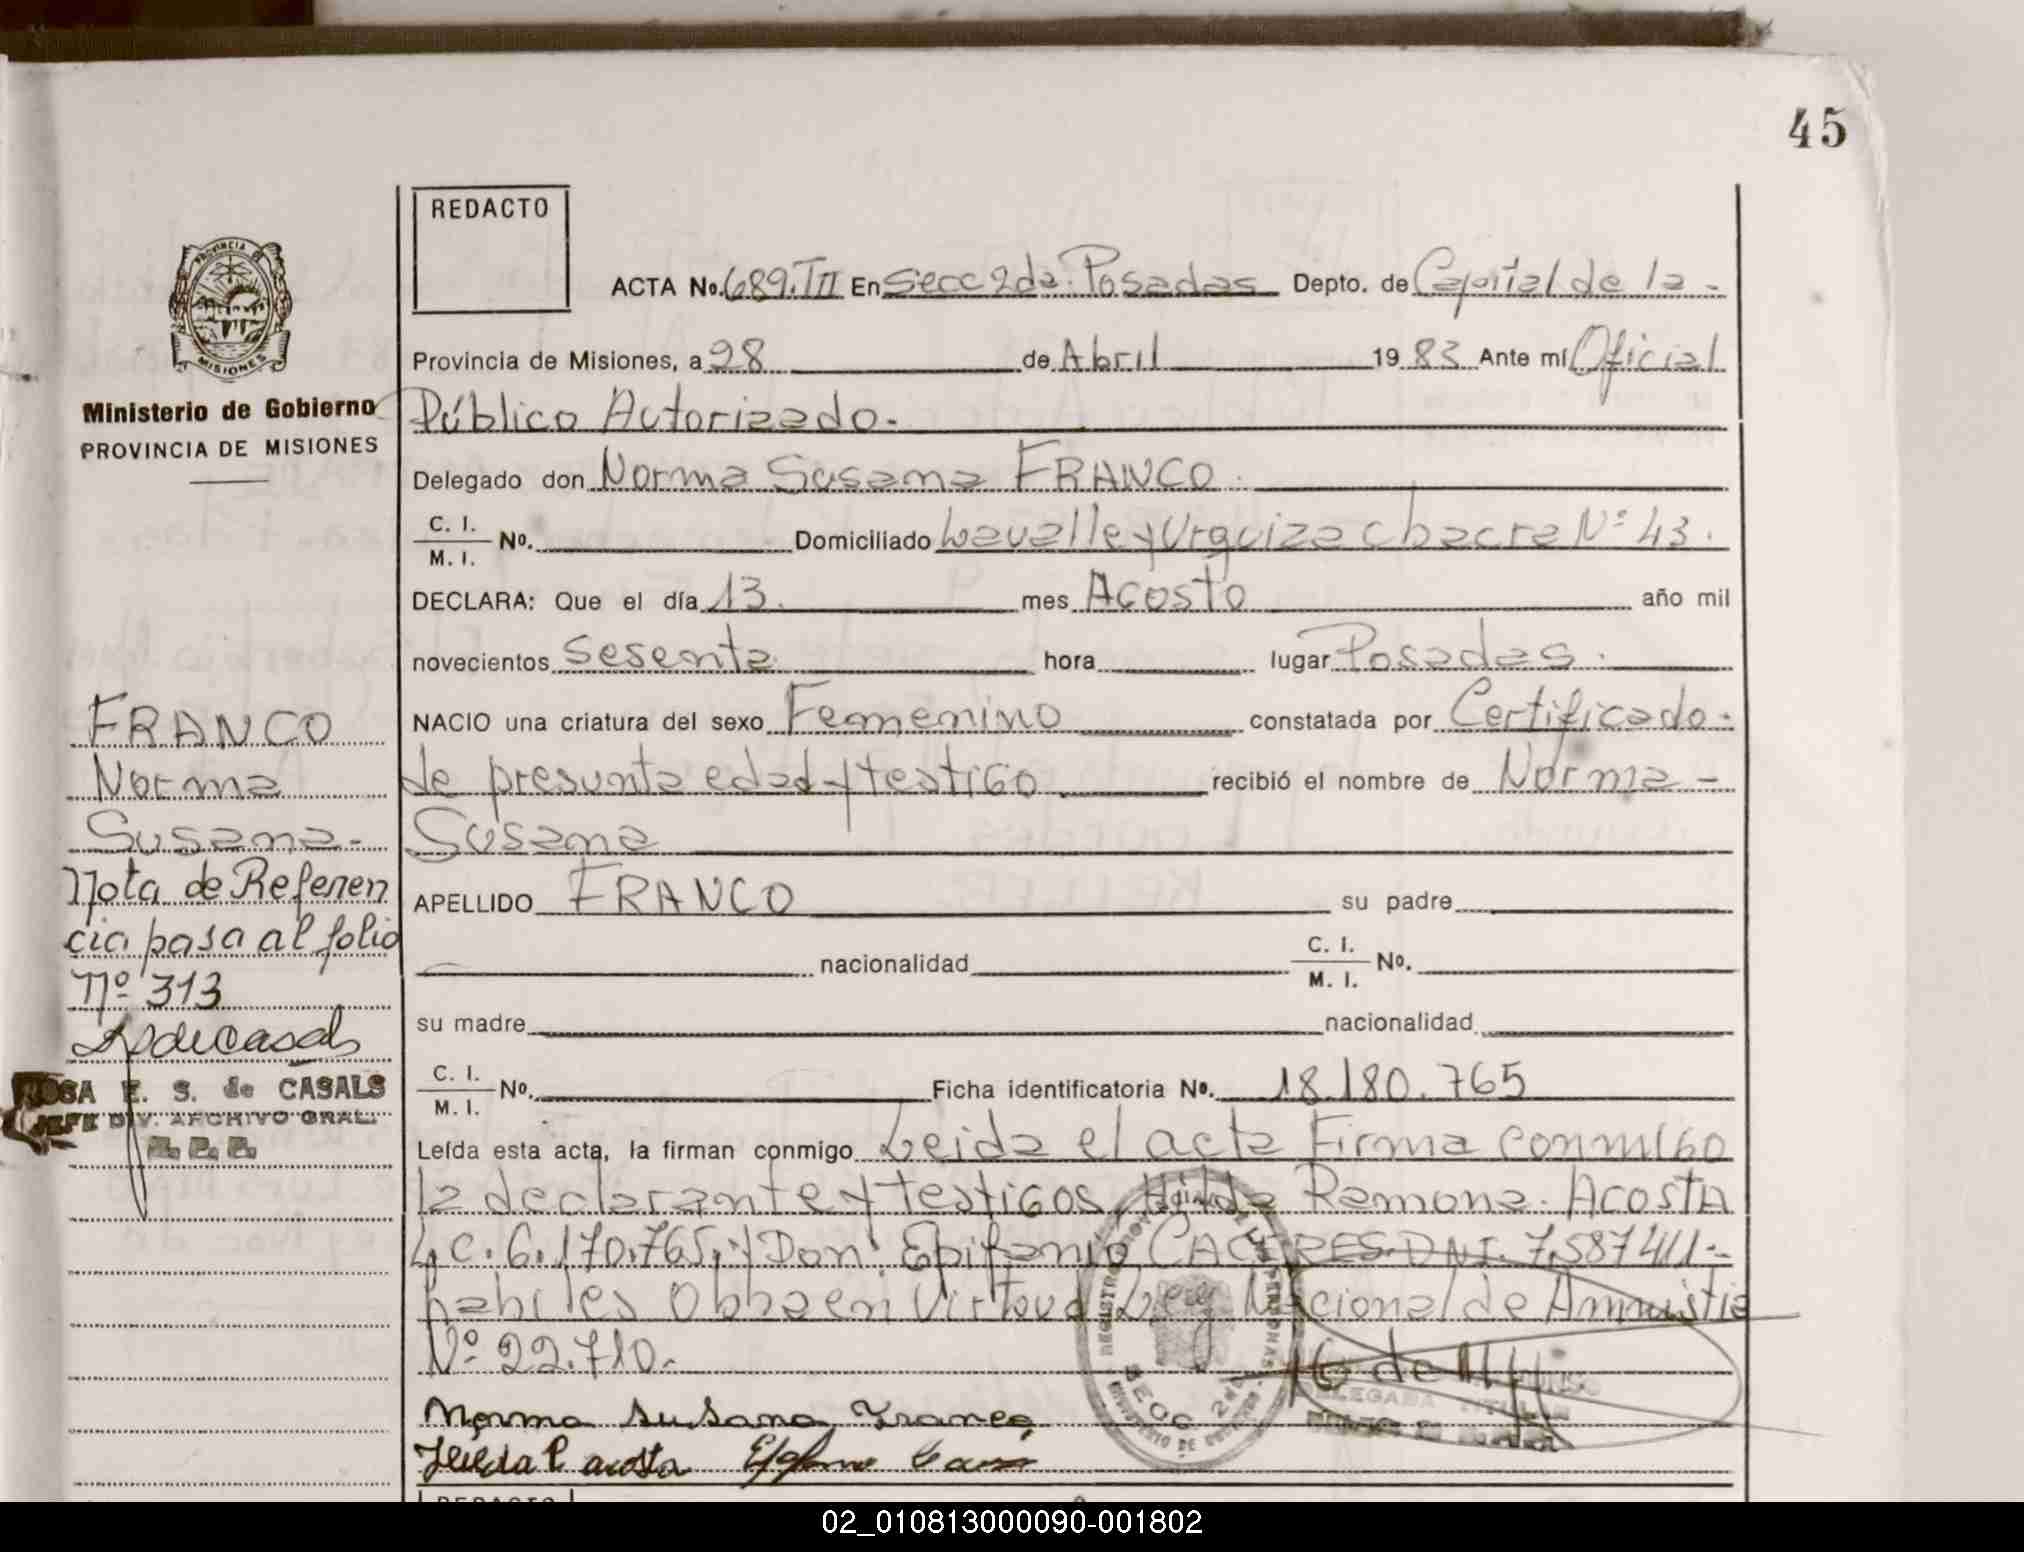 45
REDACTO
ACTA No. 689.TII En Secc 2da. Posadas Depto. de Capital de la -
Provincia de Misiones, a 28 de Abril 1983 Ante mí Oficial
Público Autorizado.
Delegado don Norma Susana FRANCO.
C. I.
M. I.
No. Domiciliado Lavalle y Urquiza Chacra Nº 43.
DECLARA: Que el día 13. mes Acosto año mil
novecientos sesenta hora lugar Posadas.
NACIO una criatura del sexo Femenino constatada por Certificado.
de presunta edad y testigo recibió el nombre de Norma -
Susana
APELLIDO FRANCO su padre
nacionalidad C. I.
M. I.
No.
su madre nacionalidad
C. I.
M. I.
No. Ficha identificatoria No. 18.180.765
Leída esta acta, la firman conmigo Leida el acta Firma conmigo
la declarante y testigos, Hilda Ramona. ACOSTA
L.C. 6.170.765, y Don Epifanio CACERES DNI. 7.587411-
habiles Obba en Virtoud Ley Nacional de Amnistia
Nº 22.710.-
Norma Susana Franco
Hilda R acosta
PROVINCIA DE
MISIONES
Ministerio de Gobierno
PROVINCIA DE MISIONES
FRANCO
Norma
Susana-
Nota de Referen
cia pasa al folio
Nº 313
ROSA E. S. de CASALS
JEFE DIV. ARCHIVO GRAL.
SECC 2da
DELEGADA TITULAR
REDACTO
02_010813000090-001802